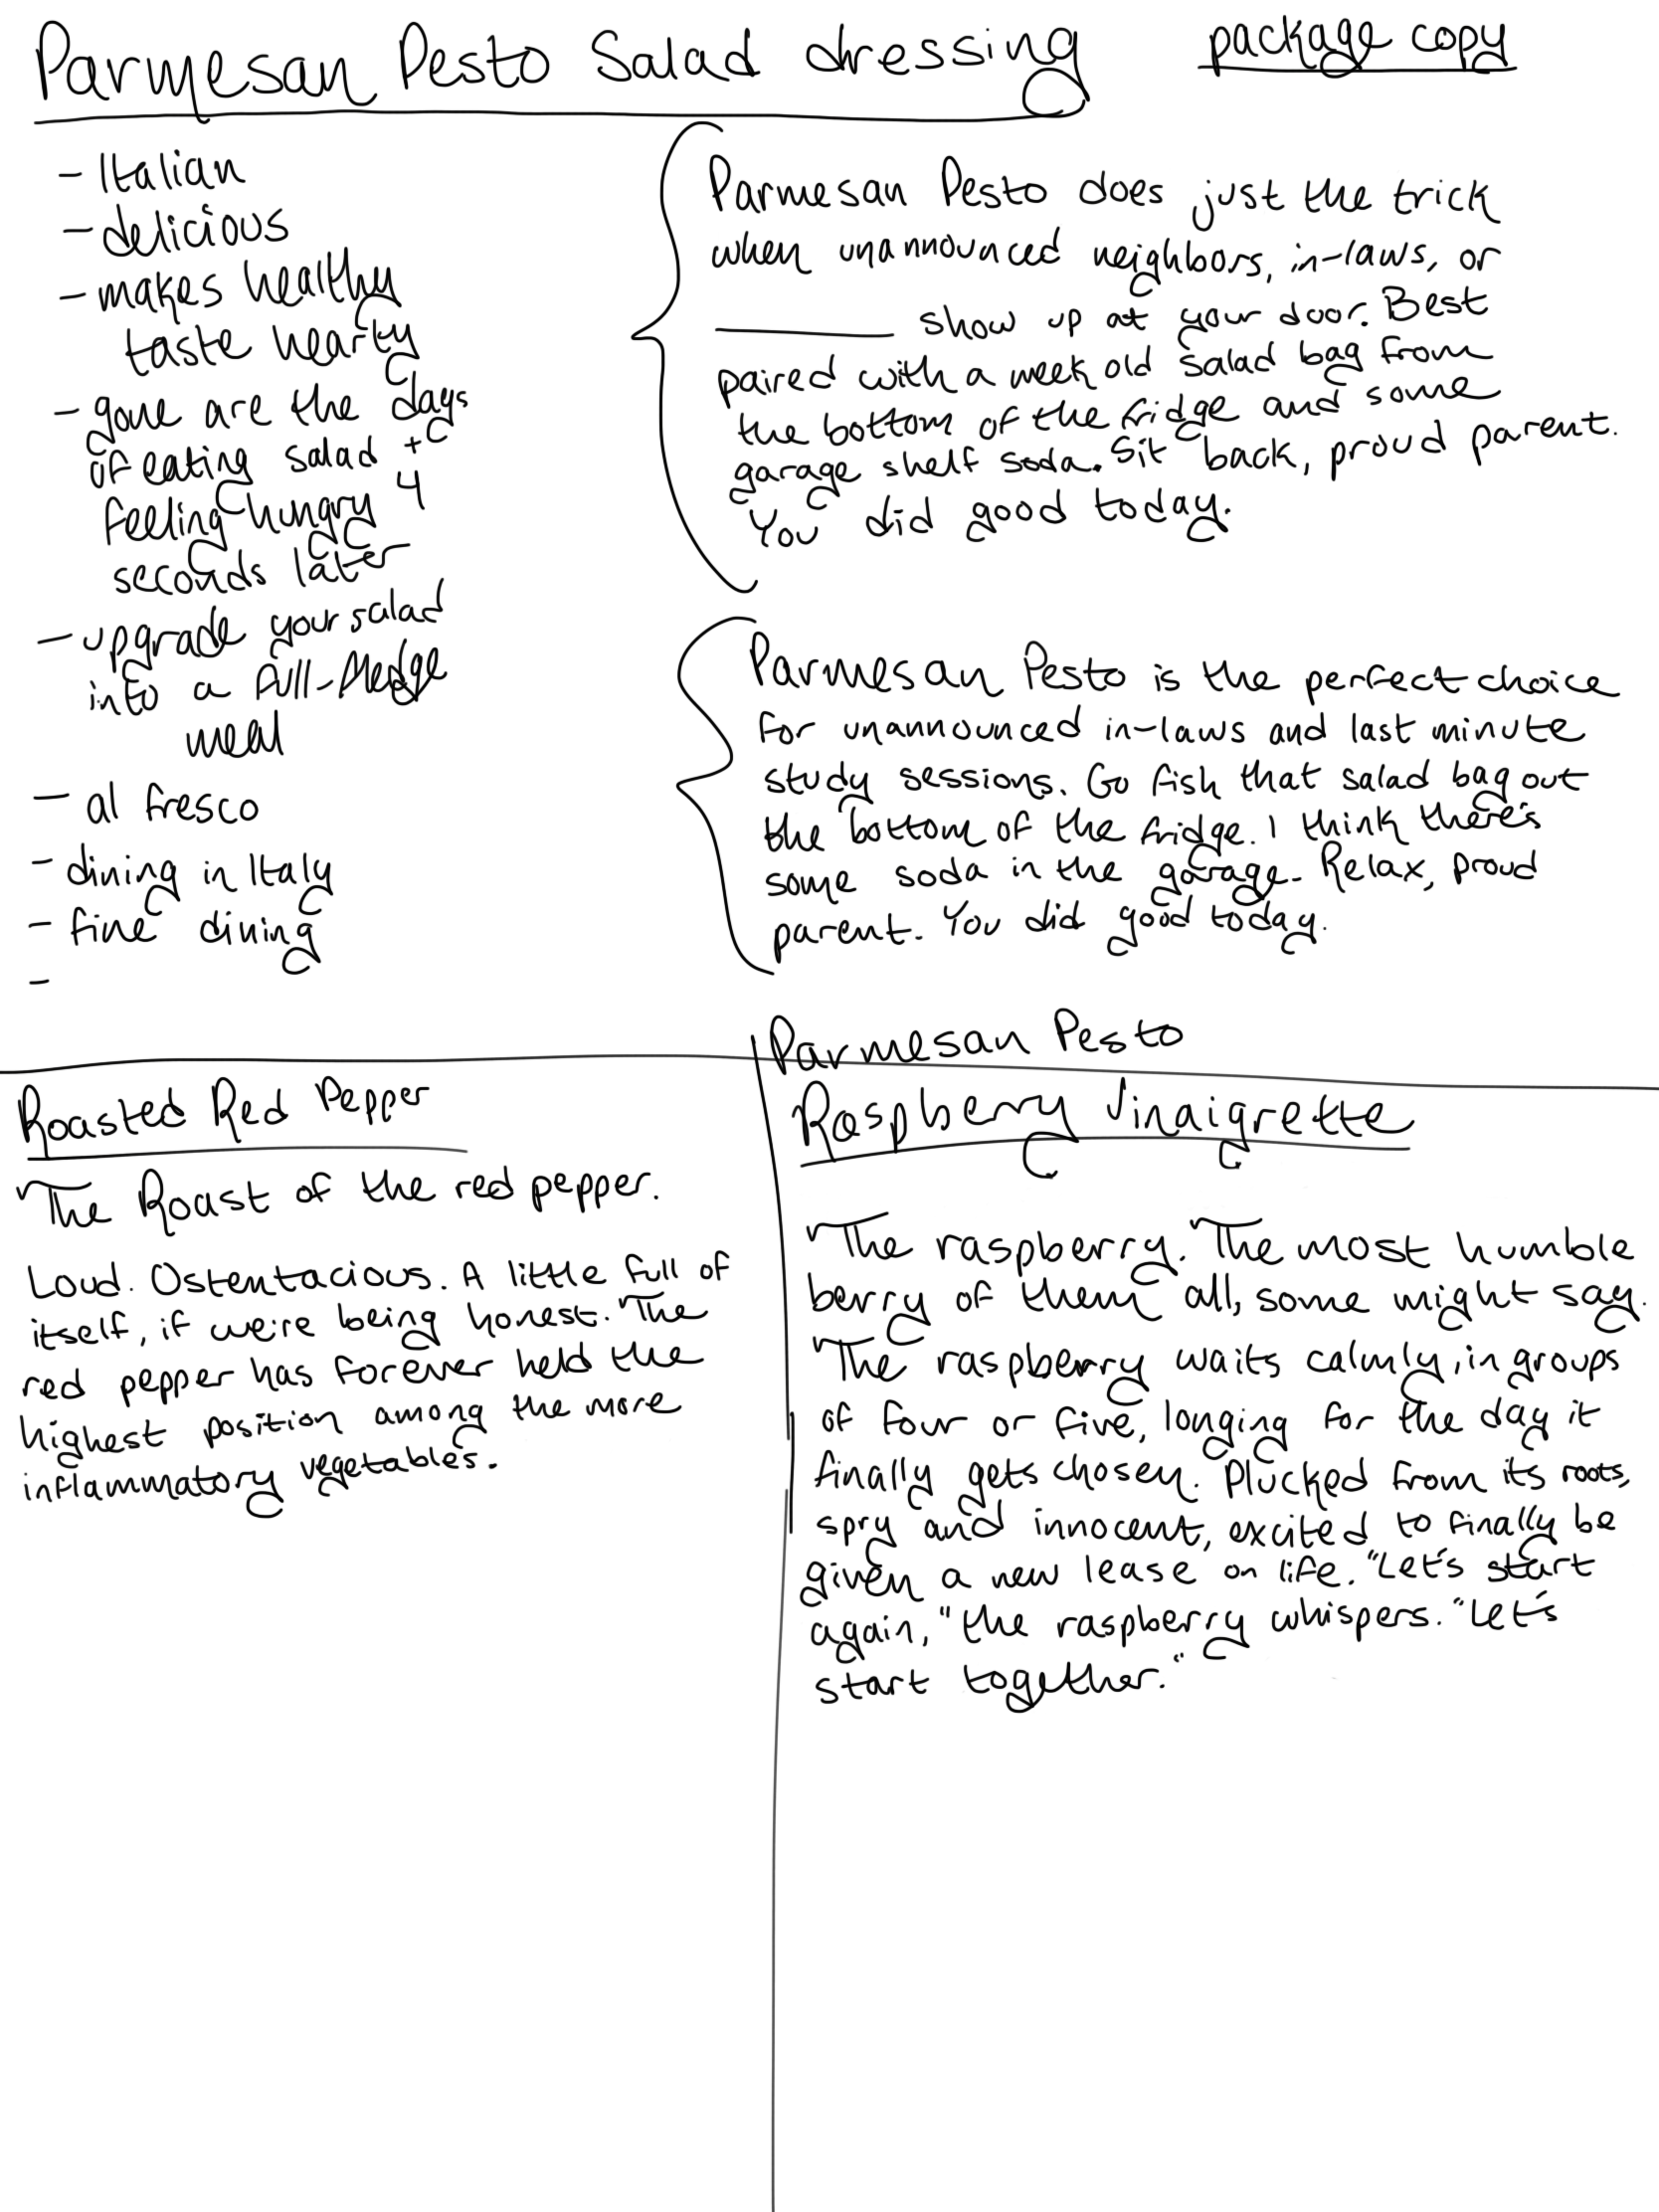 Parmesan Pesto Salad dressing
package copy
- Italian
- delicious
- makes healthy
taste hearty
- gone are the days
of eating salad +
feeling hungry 4
seconds later
- upgrade your salad
into a full-fledge
meal
- al fresco
- dining in Italy
- fine dining
-
Parmesan Pesto does just the trick
when unannounced neighbors, in-laws, or
________ show up at your door. Best
paired with a week old salad bag from
the bottom of the fridge and some
garage shelf soda. Sit back, proud parent.
You did good today.
Parmesan Pesto is the perfect choice
for unannounced in-laws and last minute
study sessions. Go fish that salad bag out
the bottom of the fridge. I think there's
some soda in the garage. Relax, proud
parent. You did good today.
Roasted Red Pepper
The Roast of the red pepper.
Loud. Ostentacious. A little full of
itself, if we're being honest. The
red pepper has forever held the
highest position among the more
inflammatory vegetables.
Parmesan Pesto
Raspberry Vinaigrette
The raspberry. The most humble
berry of them all, some might say.
The raspberry waits calmly, in groups
of four or five, longing for the day it
finally gets chosen. Plucked from its roots,
spry and innocent, excited to finally be
given a new lease on life. "Let's start
again," the raspberry whispers. "Let's
start together."